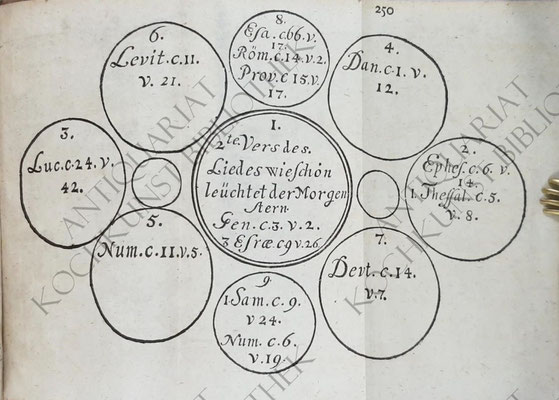 250
8.
Esa. c.66. v.
17.
Röm. c 14. v. 2.
Prov. c 15. v.
17.
6.
Levit. c. 11.
v. 21.
4.
Dan. c. 1. v.
12.
3.
Luc. c. 24. v.
42.
1.
2te. Vers des
Liedes wie schön
leüchtet der Morgen
stern.
Gen. c. 3. v. 2.
3 Esræ c 9 v. 26.
2.
Ephes. c. 6. v.
14.
1. Thessal. c. 5.
v. 8.
5.
Num. c. 11. v. 5.
7.
Devt. c. 14.
v. 7.
9.
1 Sam. c. 9.
v 24.
Num. c. 6.
v. 19.
ANTIQUARIAT
KOCHKUNSTBIBLIOTHEK
ANTIQUARIAT
KOCHKUNSTBIBLIOTHEK